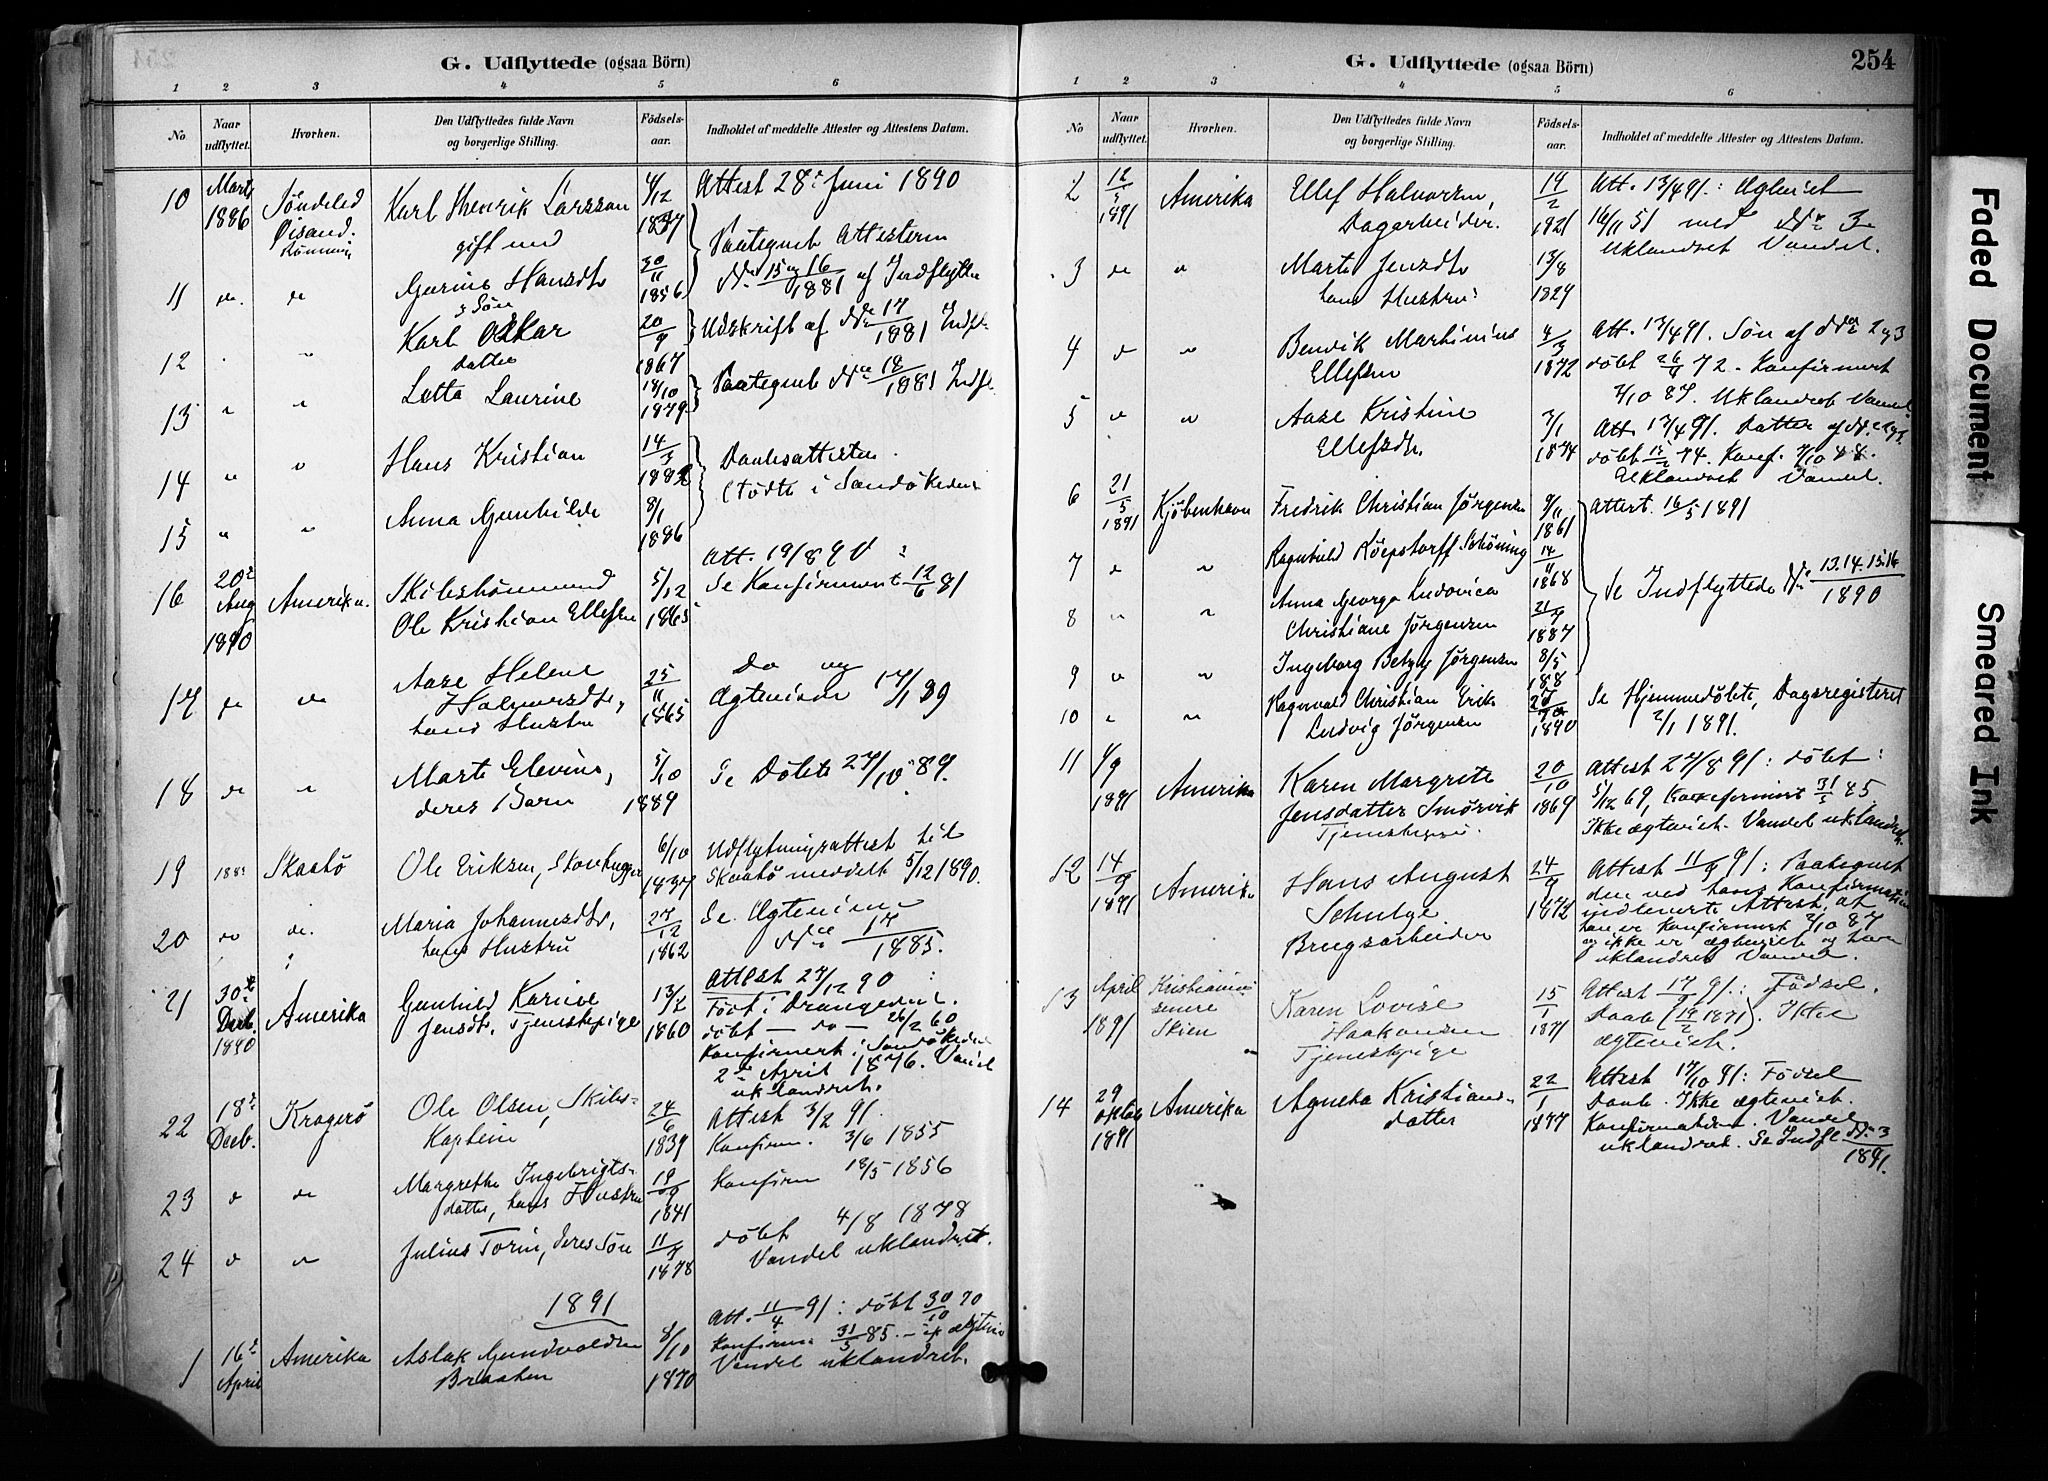 G. Udflyttede (ogsaa Börn)
1 2 3 4 5 6
No
Naar udflyttet.
Hvorhen.
Den Udflyttedes fulde Navn og borgerlige Stilling.
Födsels-aar.
Indholdet af meddelte Attester og Attestens Datum.
10 Marts 1886 Søndeled Karl Henrik Larsson 4/12 1837 Attest 28de Juni 1890
gift med
Paategnet Attesterne
11 do. do Gurine Hansdtr 30/11 1856 No 15 og 16/1881 af Indflytte
& Søn
12 " Karl Oskar 20/9 1867 Udskrift af No 17/1881 Indfl.
datter
13 " " Lotta Laurine 18/10 1879 Paategnet No 18/1881 Indfl
14 " " Hans Kristian 14/3 1882 Daabsattester
(fødte i Sandøkedal
15 " " Anna Gunhilde 8/1 1886
Att. 19/8 90 :
16 20de Aug 1890 Amerika. Skibstømmermand 5/12 1865 Se Konfirmerte 12/6 81
Ole Kristian Ellefsen
17 do do Aase Helene 25/11 1865 Do og
Halvorsdtr, Ægteviede 17/1 89
hans Hustru
18 do " Marte Elevine, 5/10 1889 Se Døbte 27/10 89.
deres Barn
19 1889 Skaatø Ole Eriksen, Skovhugger 6/10 1837 Udflytningsattest til
Skaatø meddelt 5/12 1890.
20 do do. Maria Johannesdtr, 27/12 1862 Se Ægteviede
hans Hustru No 17/1885.
21 30te Decb. 1890 Amerika Gunhild Karine 13/2 1860 Attest 27/12 90 :
Jensdtr, Tjenestepige Født i Drangedal.
døbt — do — 26/2 60
Konfirmert i Sandøkedal
2den April 1876. Vandel
uklandret.
22 18de Decb. Kragerø Ole Olsen, Skibs- 24/6 1839 Attest 3/2 91.
Kaptein Konfirm. 3/6 1855
23 do do Margrethe Ingebrigts- 19/9 1841 Konfirm 18/5 1856
datter, hans Hustru
24 do " Julius Torin, deres Søn 11/4 1878 døbt 4/8 1878
Vandel uklandret.
1891
1 16de April Amerika Aslak Gundvaldsen 8/10 1870 Att. 11/4 91: døbt 30/10 70
Braaten Konfirm. 31/5 85. – ik ægtevi
Vandel uklandret.
G. Udflyttede (ogsaa Börn)
254
1 2 3 4 5 6
No
Naar udflyttet.
Hvorhen.
Den Udflyttedes fulde Navn og borgerlige Stilling.
Födsels-aar.
Indholdet af meddelte Attester og Attestens Datum.
2 12/5 1891 Amerika Ellef Halvorsen, 19/2 1821 Att. 13/4 91: Ægteviet
Dagarbeider. 16/11 51 med No 3
Uklandret Vandel.
3 do " Marte Jensdtr 13/8 1829
hans Hustru
4 do " Bendik Martinius 4/3 1872 Att. 13/4 91. Søn af No 2 og 3
Ellefsen døbt 26/4 72. Konfirmert
2/10 87. Uklandret Vandel
5 " " Aase Kristine 3/1 1874 Att. 13/4 91. Datter af No 2 og 3.
Ellefsdtr. døbt 15/2 74. Konf. 7/10 88.
Uklandret Vandel.
6 21/5 1891 Kjøbenhavn Fredrik Christian Jørgensen 9/11 1861 Attest. 16/5 1891
7 do " Ragnhild Röepstorff Schöning 14/11 1868
Se Indflyttede No 13.14.15.16/1890
8 " " Anna Georga Ludovica 21/9 1887
Christiane Jørgensen
9 " " Ingeborg Betzy Jørgensen 8/5 188
10 " " Ragnvald Christian Erik 1890 Se Hjemmedøbte, Dagsregisteret
Ludvig Jørgensen 2/1 1891.
11 4/9 1891 Amerika Karen Margrete 20/10 1869 Attest 27/8 91: døbt:
Jensdatter Smørvik 5/12 69, Konfirmert 31/5 85
Tjenestepige. Ikke ægteviet. Vandel uklandret.
12 14/9 1891 Amerika Hans August 24/9 1872 Attest 11/9 91: Paategnet
Schulze. den ved hans Konfirmation
Brugsarbeider indleverte Attest, at
han er Konfirmert 2/10 87
og ikke er ægteviet og har
uklandret Vandel.
13 April 1891 Kristiania Karen Lovise 15/1 1871 Attest 17/9 91: Fødsel.
senere Haakonsen Daab (19/2 1871). Ikke
Skien Tjenestepige ægteviet.
14 29 Oktbr 1891 Amerika Agneta Kristians- 22/1 1877 Attest 17/10 91: Fødsel
datter Daab. Ikke ægteviet.
Konfirmation. Vandel
uklandret. Se Indfl No 3/1891.
Faded Document
Smeared Ink